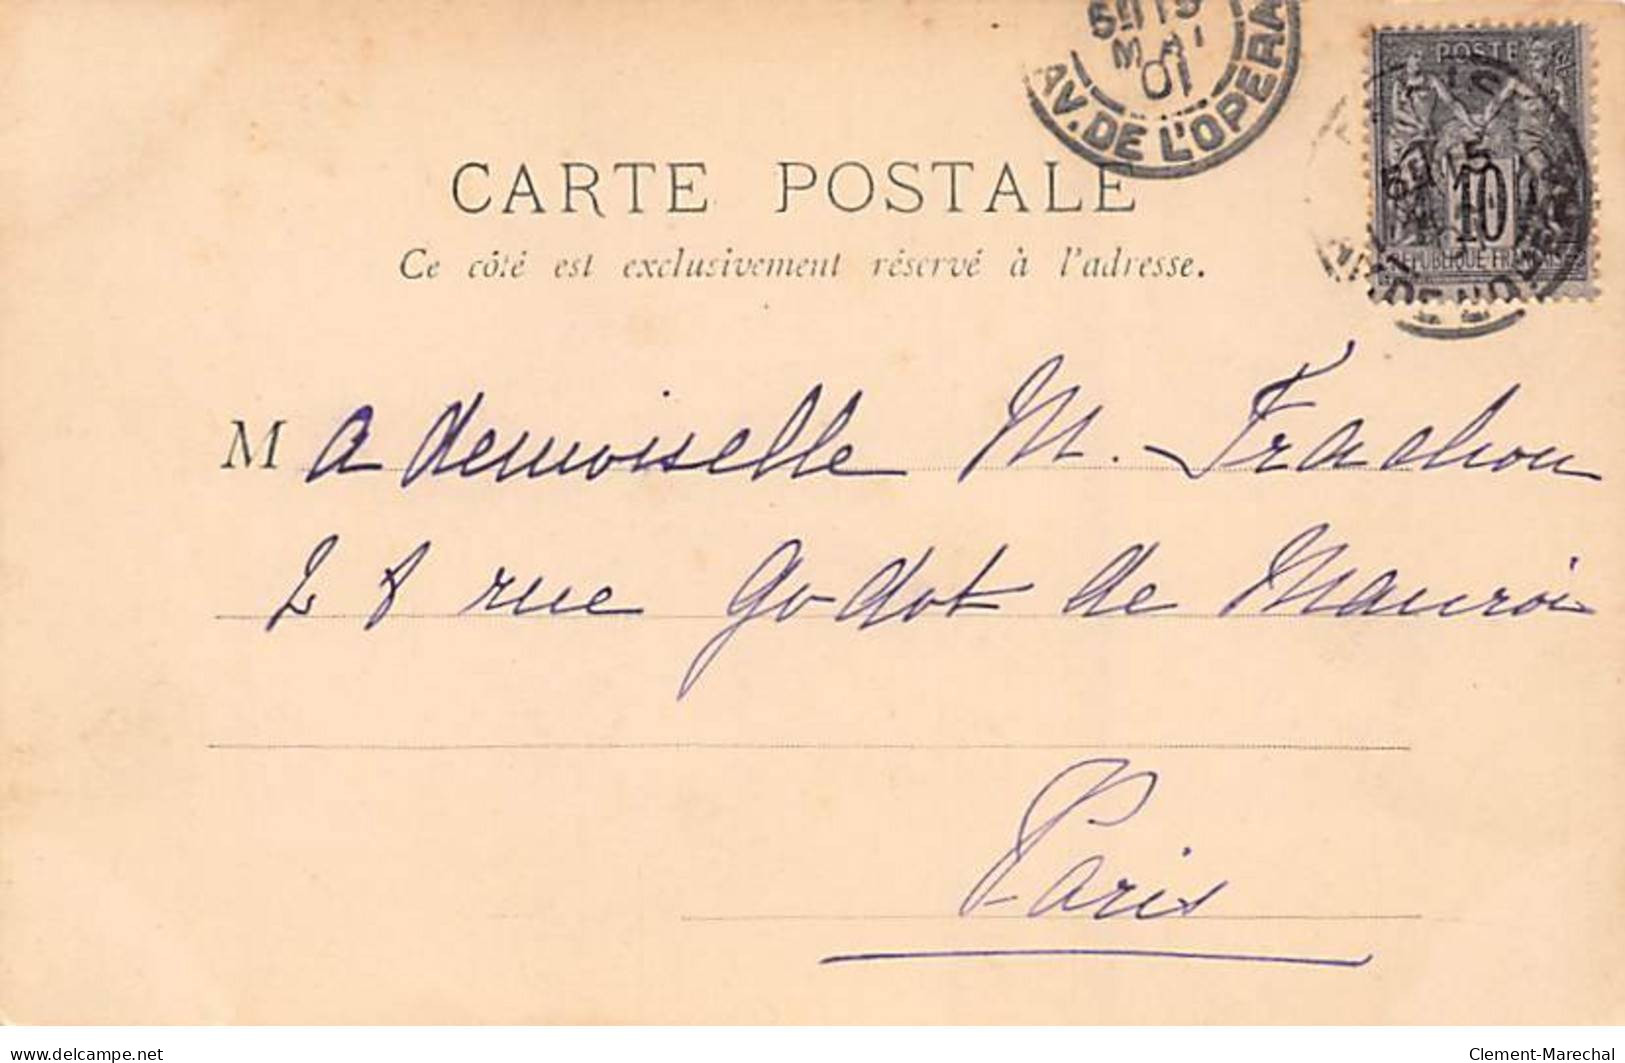 5H 15
MAI
01
AV. DE L'OPERA
POSTE
15
10
REPUBLIQUE FRANCAISE
CARTE POSTALE
Ce côté est exclusivement réservé à l'adresse.
Mademoiselle M. Frachon
28 rue Godot de Mauroi
Paris
www.delcampe.net
Clement-Marechal